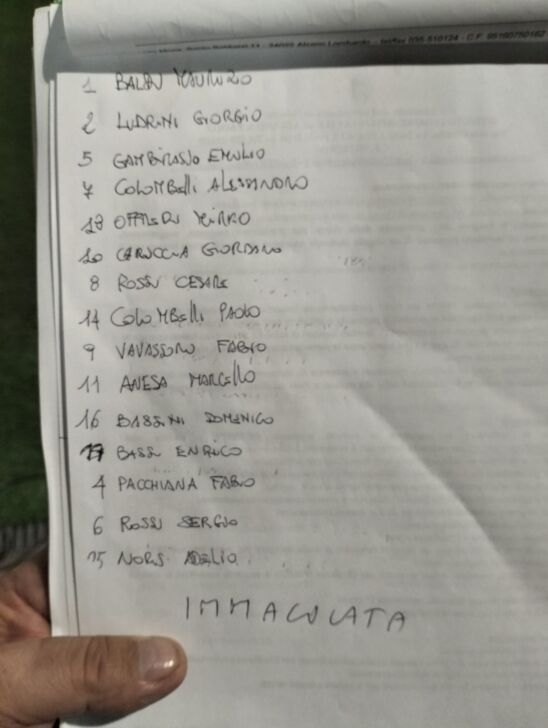 24022 Alzano Lombardo - tel/fax 035-510124 - C.F. 95160750162
1 BALDU MAURIZIO
2 LUDRINI GIORGIO
5 GAMBIRASIO EMILIO
7 COLOMBELLI ALESSANDRO
18 MIRKO
10 GIORDANO
8 ROSSI CESARE
14 COLOMBELLI PAOLO
9 VAVASSORI FABIO
11 ANESA MARCELLO
16 BASSINI DOMENICO
17 BASSI ENRICO
4 PACCHIANA FABIO
6 ROSSI SERGIO
15 NORIS ADELIO
IMMACOLATA